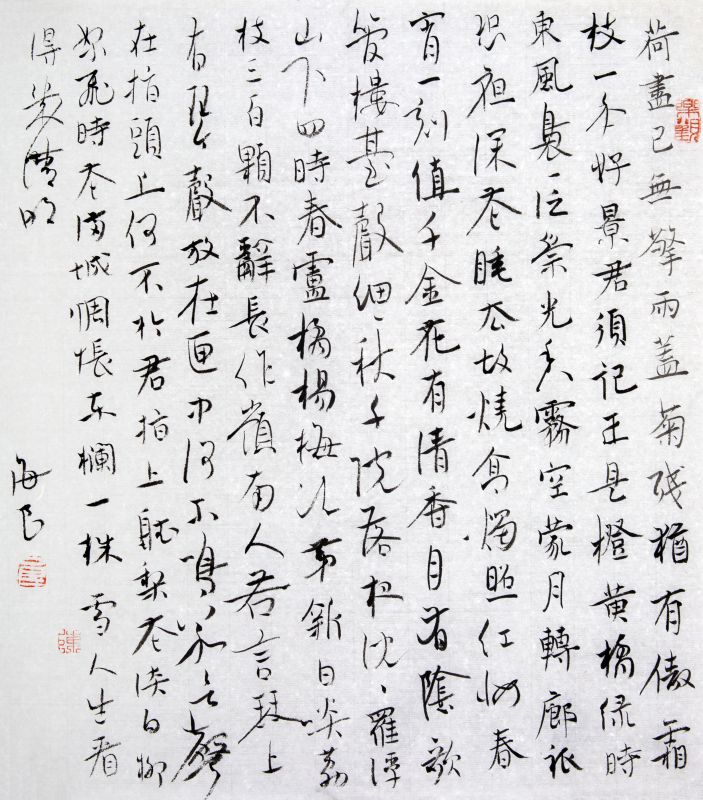 荷盡已無擎雨蓋菊殘猶有傲霜
枝一年好景君須記正是橙黃橘綠時
東風裊〻泛崇光香霧空蒙月轉廊祇
恐夜深花睡去故燒高燭照紅妝春
宵一刻值千金花有清香月有陰歌
管樓臺聲細〻秋千院落夜沈〻羅浮
山下四時春盧橘楊梅次第新日啖荔
枝三百顆不辭長作嶺南人若言琴上
有琴聲放在匣中何不鳴若言聲
在指頭上何不於君指上聽梨花淡白柳
絮飛時花滿城惆悵東欄一株雪人生看
得幾清明